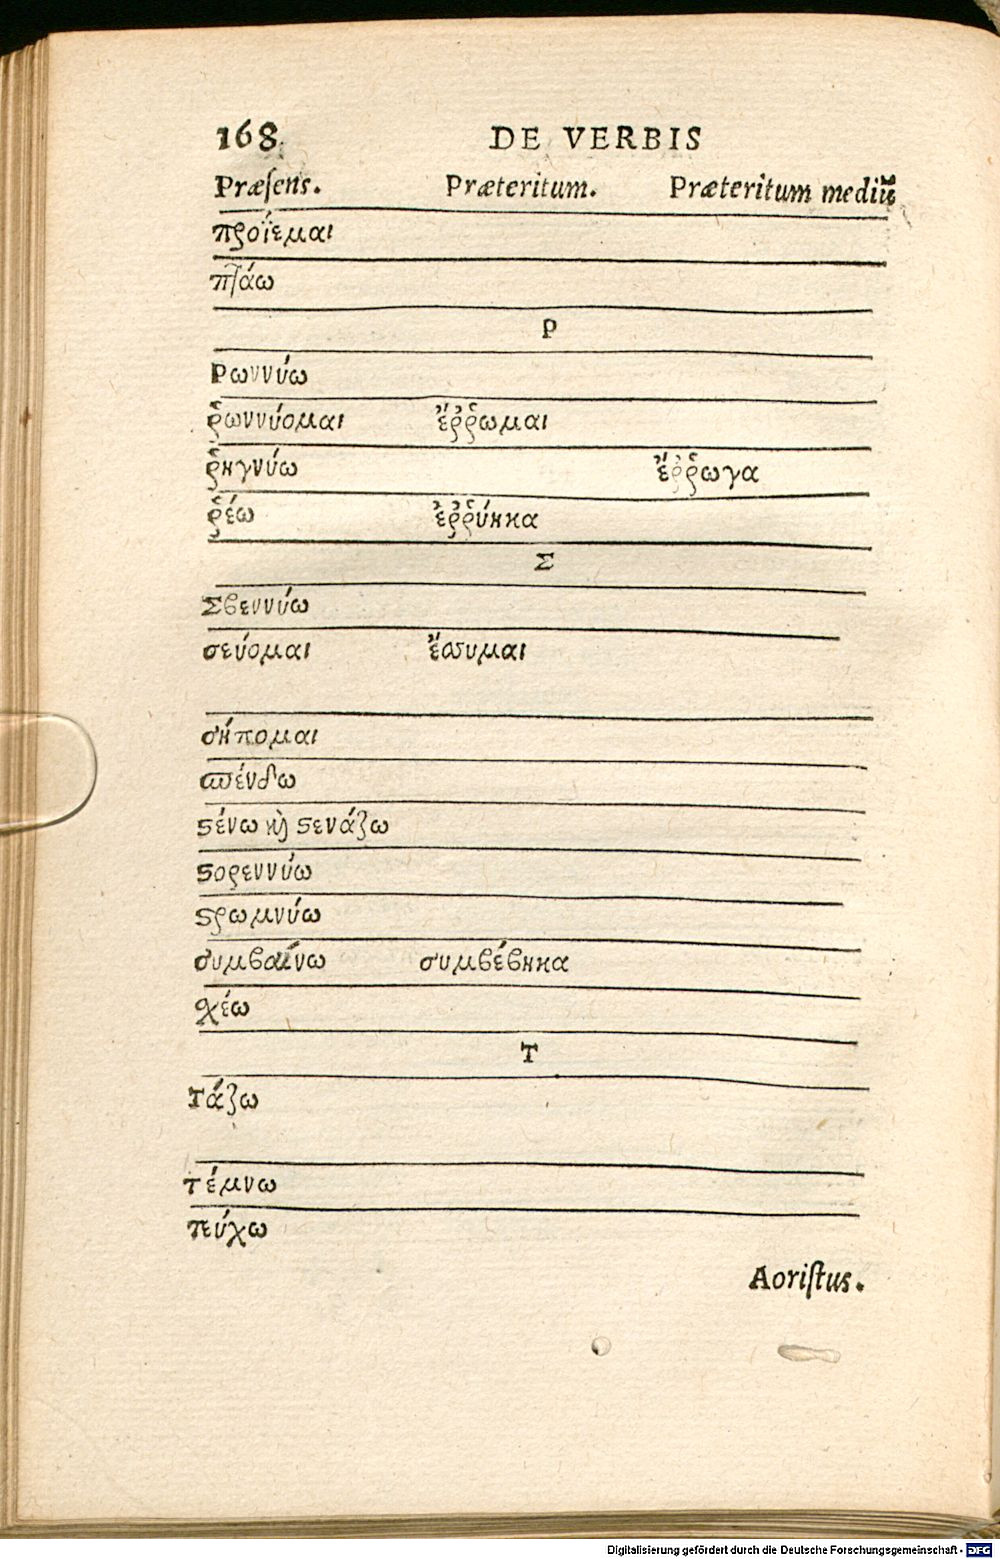 168 DE VERBIS
Præsens. Præteritum. Præteritum mediũ
προΐεμαι
πτάω
Ρ
Ρωννύω
ῥωννύομαι ἔῤῥωμαι
ῥηγνύω ἔῤῥωγα
ῥέω ἐῤῥύηκα
Σ
Σβεννύω
σεύομαι ἔσσυμαι
σήπομαι
σπένδω
στένω καὶ στενάζω
στορεννύω
στρωμνύω
συμβαίνω συμβέβηκα
χέω
Τ
Τάζω
τέμνω
τεύχω
Aoristus.
Digitalisierung gefördert durch die Deutsche Forschungsgemeinschaft - DFG